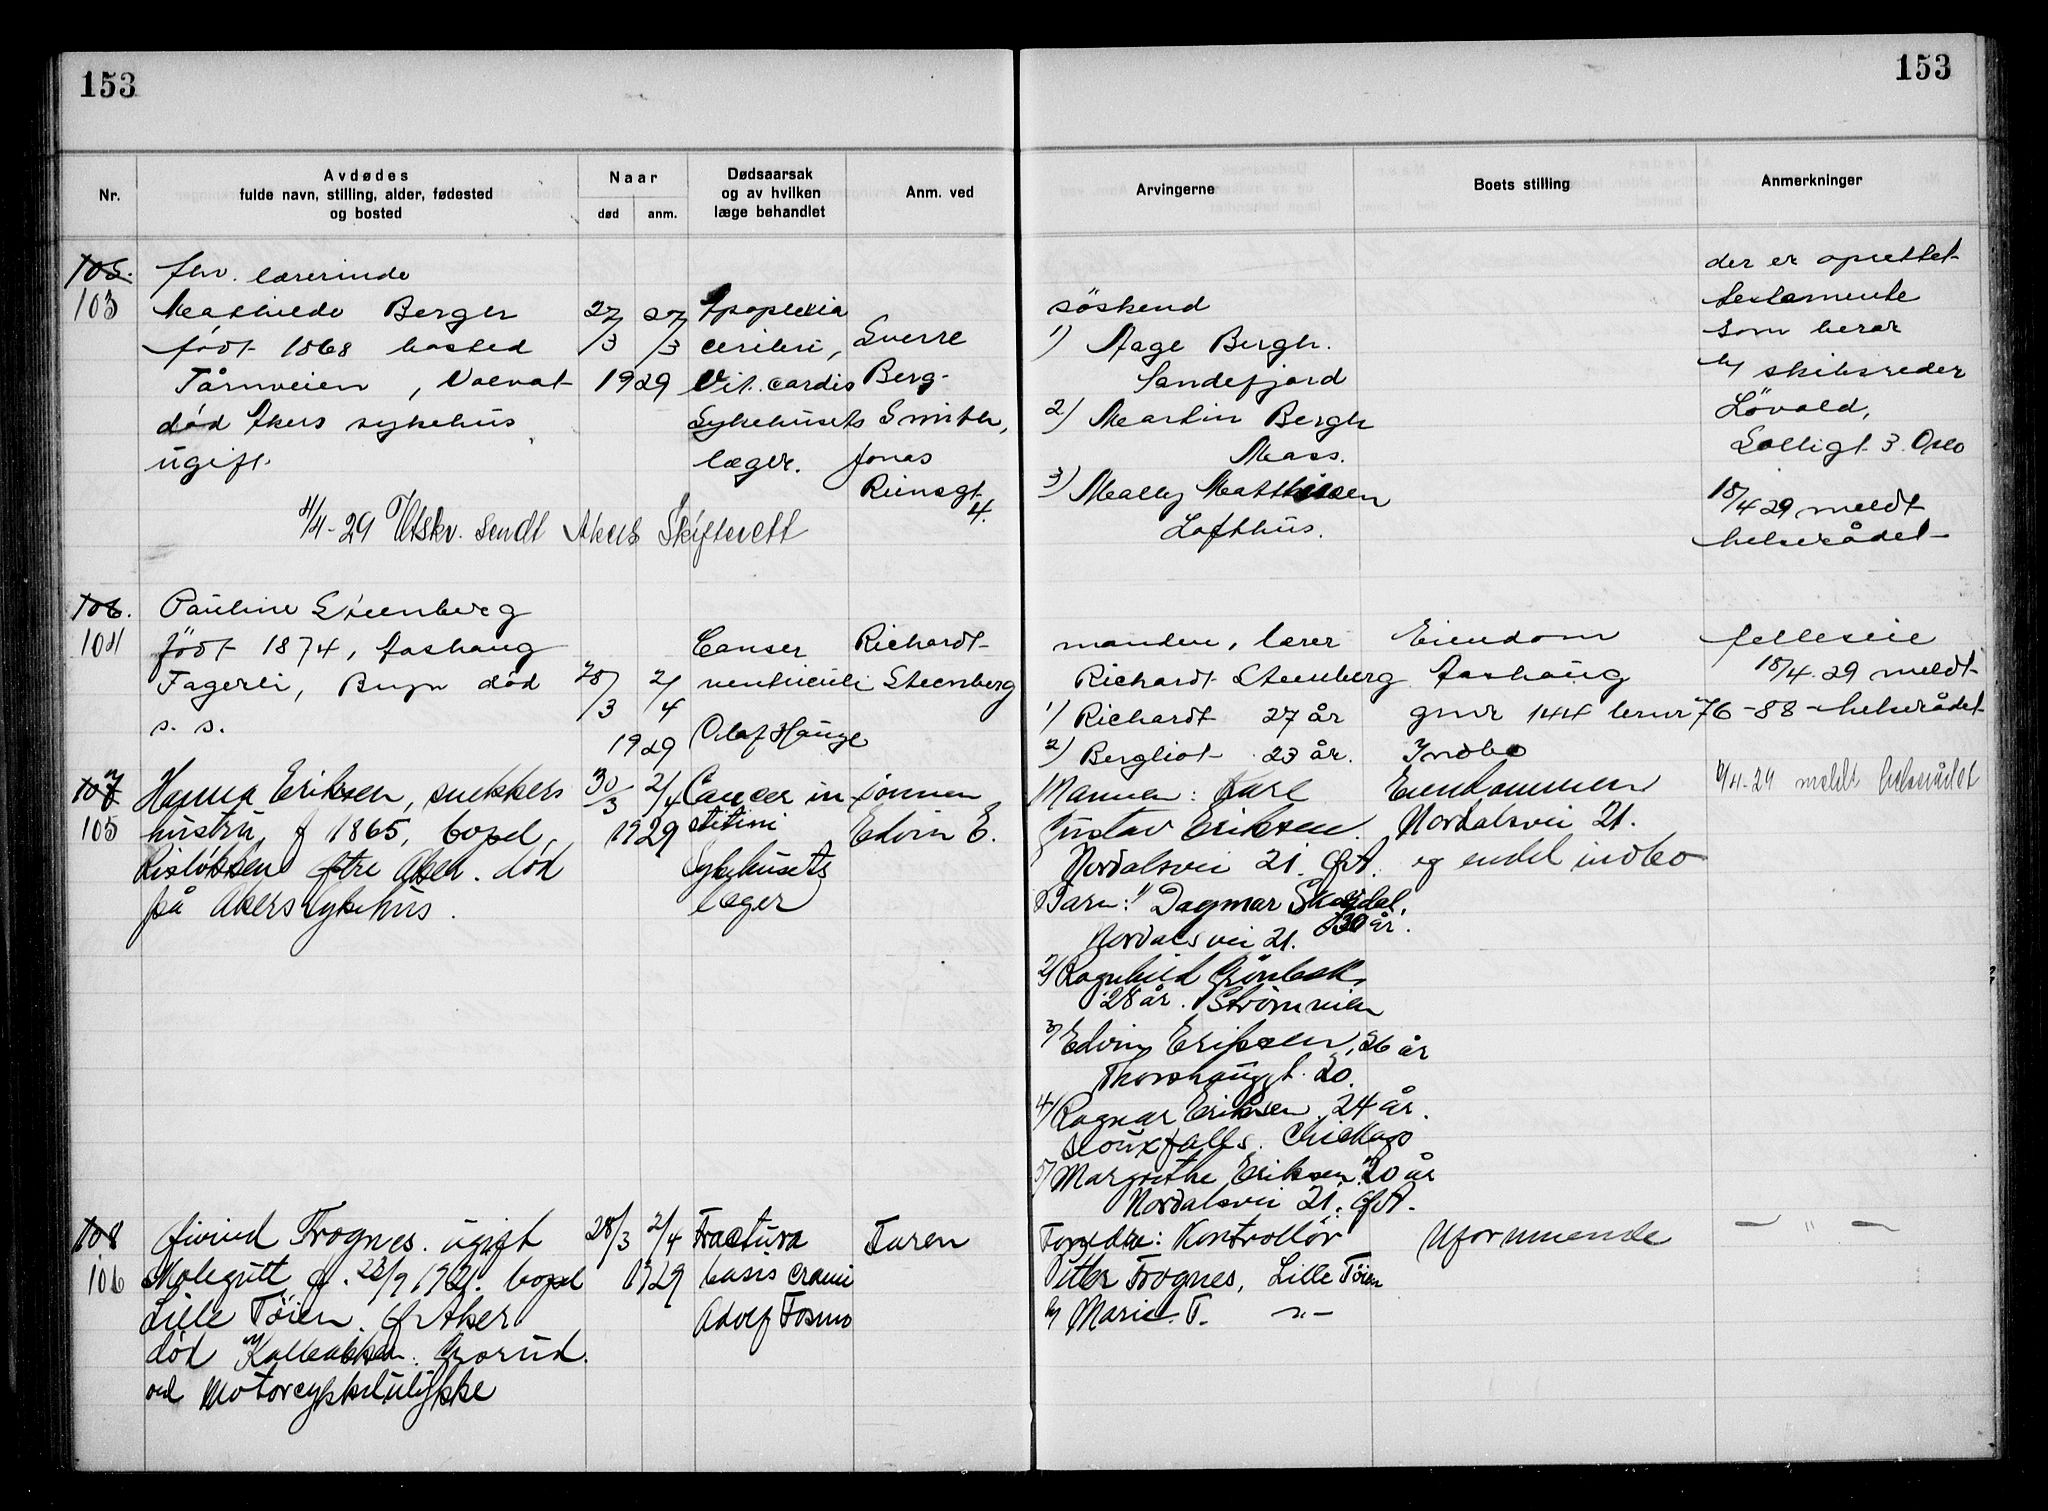 153
153
Nr.
Avdødes
fulde navn, stilling, alder, fødested
og bosted
Naar
død
anm.
Dødsaarsak
og av hvilken
læge behandlet
Anm. ved
Arvingerne
Boets stilling
Anmerkninger
105.
103
fhv. lærerinde
Mathilde Bergh
født 1868 bosted
Tårnveien, Volvat
død Akers sykehus
ugift.
27/3 27/3
1929
Apoplexia
cerebri,
Vit. cordis
Sykehusets
læger.
Sverre
Berg-
Smith,
Jonas
Reinsgt.
4.
4/4-29 Utskr. sendt Akers Skifterett
søskend
1) Aage Bergh.
Sandefjord
2) Martin Bergh
Mass.
3) Mally Matthisen
Lofthus.
der er oprettet
testamente
som beror
h/ skibsreder
Løvold,
Solligt. 3. Oslo
18/4 29 meldt
helserådet
106.
104
Pauline Steenberg
født 1874, Aashaug
Fagerli, Bryn død
s. s.
28/3 2/4
1929
Canser
ventriculi
Olaf Hauge
Richardt
Steenberg
manden, lærer
Richardt Steenberg
1) Richardt 27 år
2) Bergliot 23 år.
Eiendom
Aashaug
gnr 144 brnr 76-88-
Indbo
felleseie
18/4. 29 meldt
helserådet
107
105
Hanna Eriksen, snekkers
hustru, f 1865, bopel
Risløkken Østre Aker. død
på Akers sykehus.
30/3 2/4
1929
Cancer in
Sykehusets
læger
sønnen
Edvin E.
Mannen: Karl
Gustav Eriksen.
Nordalsvei 21. Ø.A.
Barn: 1) Dagmar Skardal,
30 år.
Nordalsvei 21.
2) Ragnhild Grønbek,
28 år. Strømveien
3) Edvin Eriksen, 26 år
Thorshauggt. 20.
4) Ragnar Eriksen. 24 år.
Siouxfalls. Chickago
5) Margrethe Eriksen 20 år
Nordalsvei 21. Ø.A.
Eiendommen
Nordalsvei 21.
og endel indbo
4-29 meldt helserådet
108
106
Øivind Frognes. ugift
skolegutt, f. 23/9 1921. bopel
Lille Tøien. Ø. Aker
død v/ Kalbakken. Grorud.
ved Motorcykkelulykke
28/3 2/4
1929
Fractura
basis cranii
Adolf Fosmo
Faren
Foreldre: Kontrollør
Petter Frognes, Lille Tøien
h/ Marie F. — " —
Uformuende
— " —